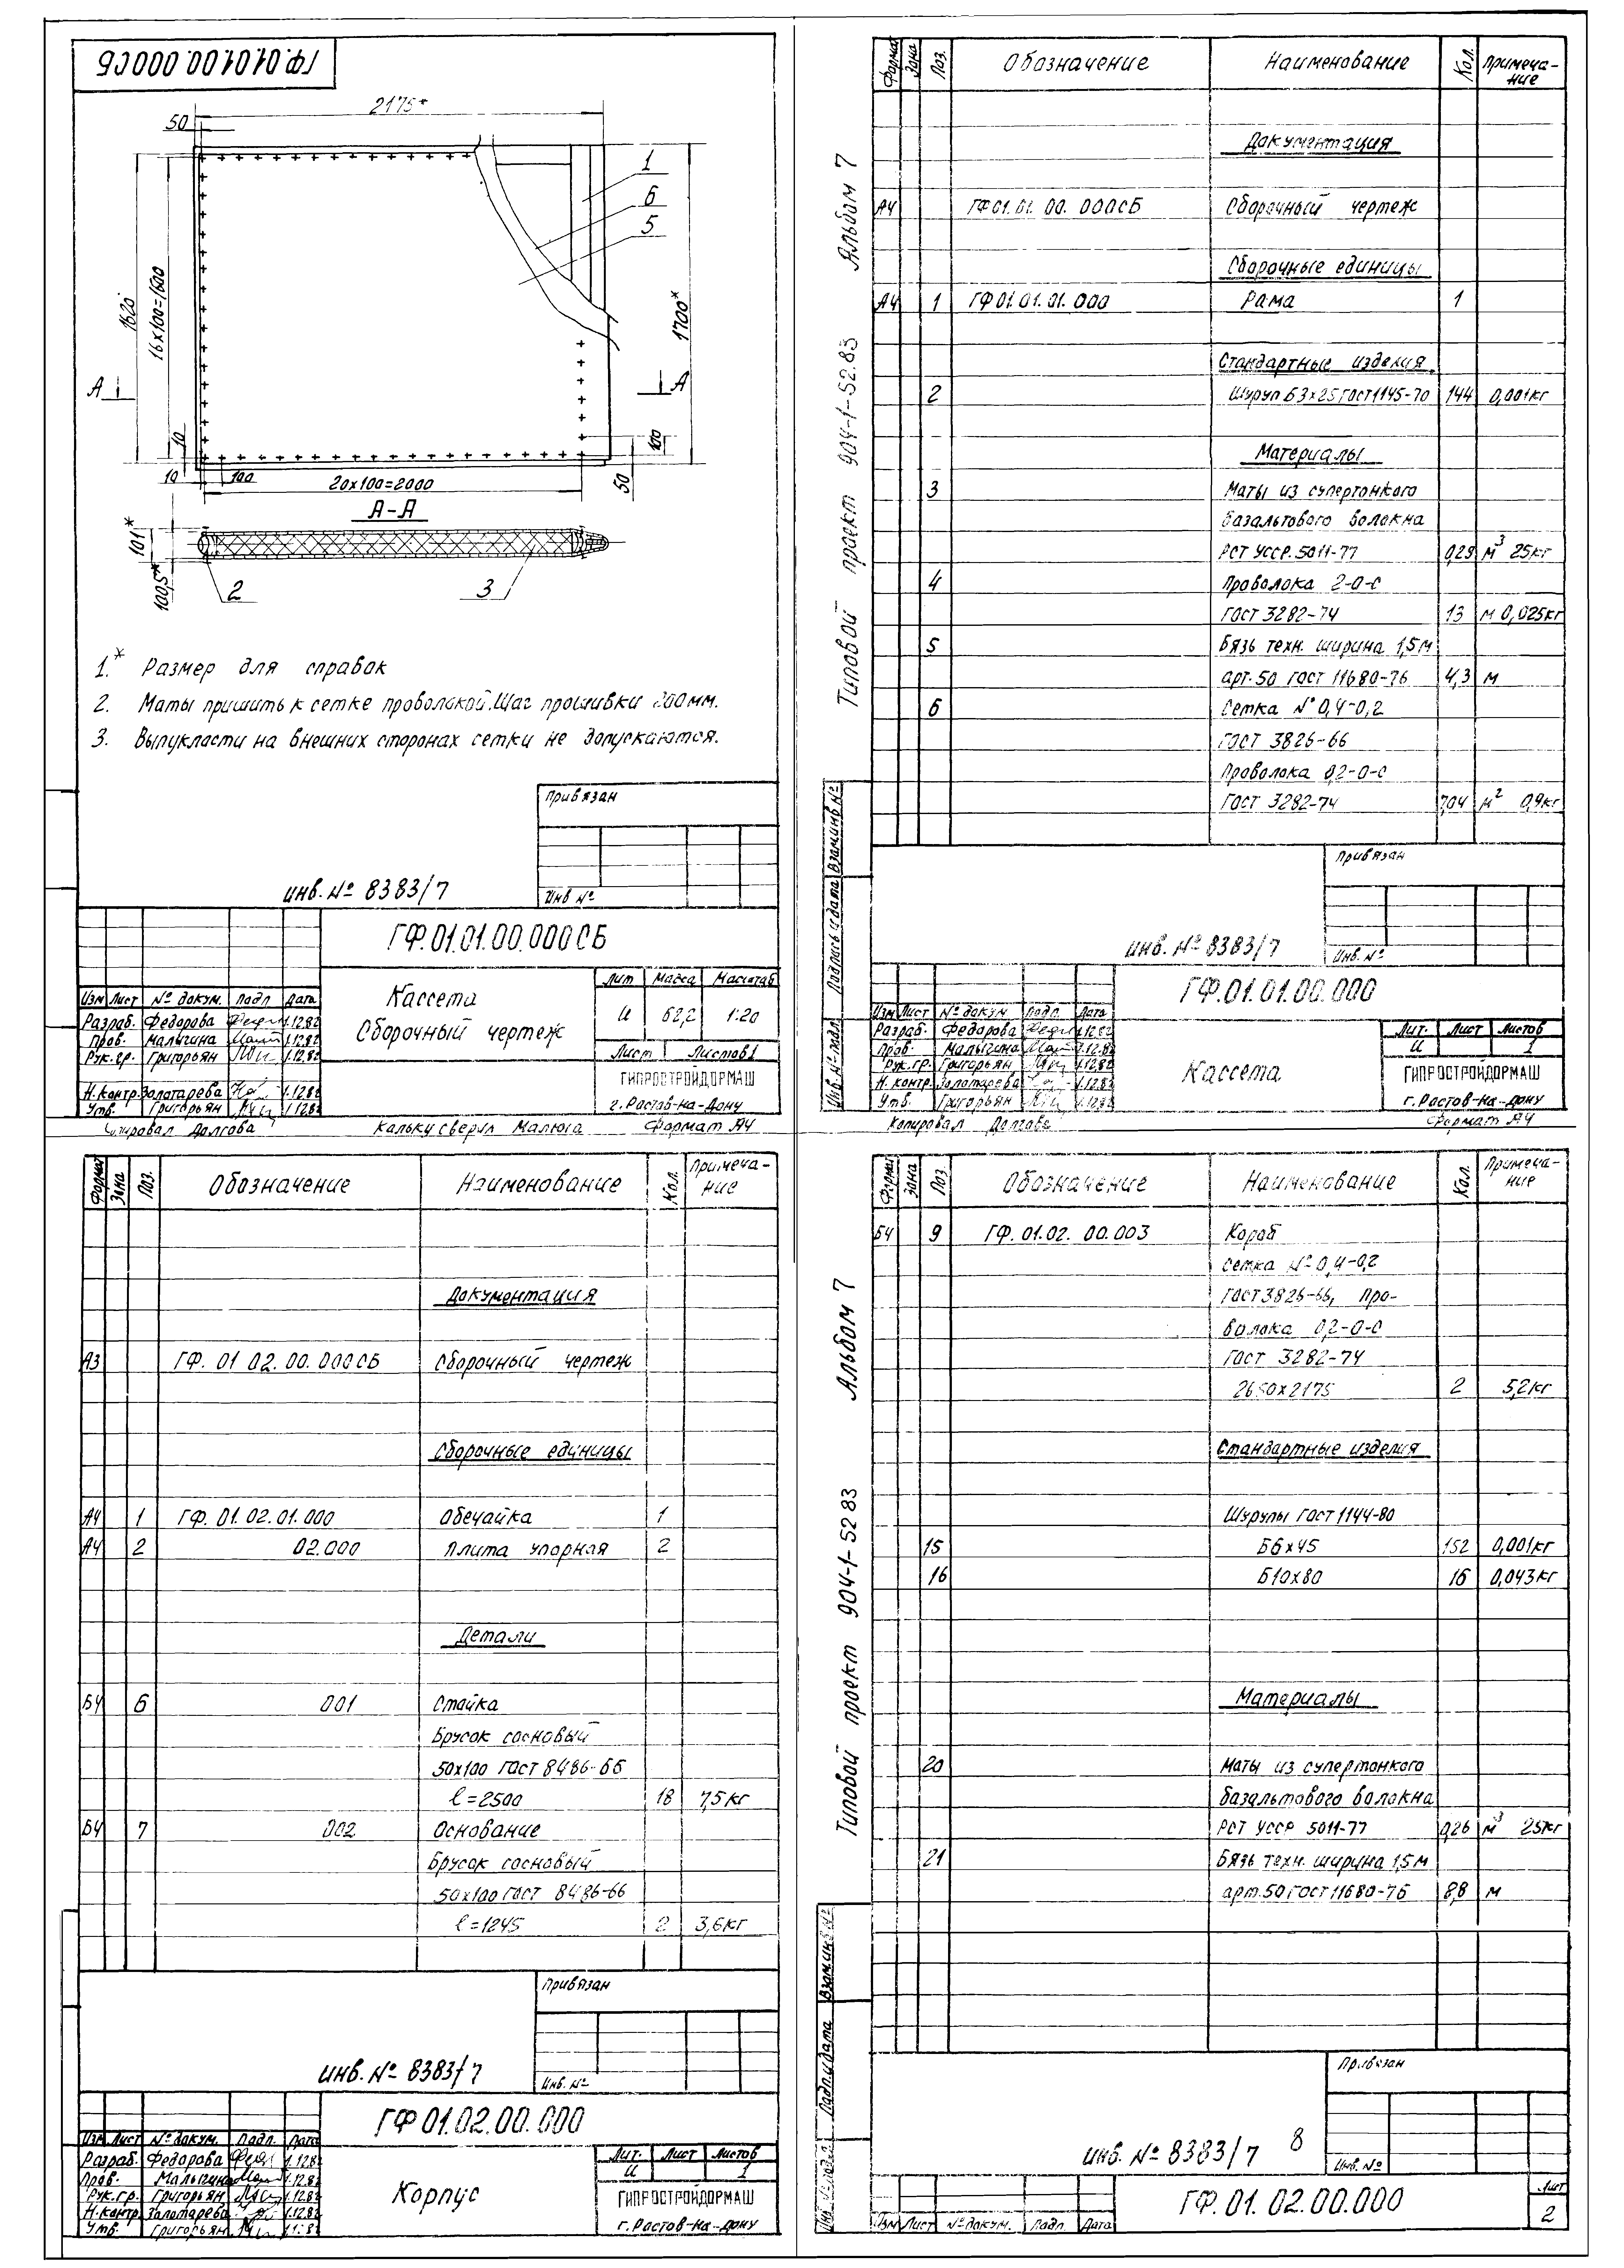 ГФ.01.01.00.000СБ
2175*
50
1
6
5
1620*
16х100=1600
1700*
А
А
10
10
100
20х100=2000
100
50
А-А
101*
100,5*
2
3
1.* Размер для справок
2. Маты пришить к сетке проволокой. Шаг прошивки 200мм.
3. Выпуклости на внешних сторонах сетки не допускаются.
Привязан
Инв №
инв. № 8383/7
ГФ.01.01.00.000СБ
Кассета
Сборочный чертеж
Лит Масса Масштаб
И 62,2 1:20
Лист Листов 1
ГИПРОСТРОЙДОРМАШ
г. Ростов-на-Дону
Изм Лист № докум. Подп Дата
Разраб. Федорова 1.12.82
Пров. Малыгина 1.12.82
Рук. гр. Григорьян 1.12.82
Н. контр. Золотарева 1.12.82
Утв. Григорьян 1.12.82
Копировал Долгова Кальку сверил Малюга Формат А4
Типовой проект 904-1-52.83 Альбом 7
Формат Зона Поз. Обозначение Наименование Кол. Примечание
Документация
А4 ГФ 01.01.00.000СБ Сборочный чертеж
Сборочные единицы
А4 1 ГФ 01.01.01.000 Рама 1
Стандартные изделия
2 Шуруп Б3х25 ГОСТ 1145-70 144 0,001кг
Материалы
3 Маты из супертонкого
базальтового волокна
РСТ УССР. 5011-77 0,29 м³ 25кг
4 Проволока 2-0-С
ГОСТ 3282-74 13 м 0,025кг
5 Бязь техн. ширина 1,5м
арт. 50 ГОСТ 11680-76 4,3 м
6 Сетка № 0,4-0,2
ГОСТ 3826-66
Проволока 0,2-0-С
ГОСТ 3282-74 7,04 м² 0,9кг
Взам.инв №
Подпись и дата
Инв. № подл.
Привязан
Инв. №
инв. № 8383/7
ГФ.01.01.00.000
Изм Лист № докум. Подп. Дата
Разраб. Федорова 1.12.82
Пров. Малыгина 1.12.82
Рук. гр. Григорьян 1.12.82
Н. контр. Золотарева 1.12.82
Утв. Григорьян 1.12.82
Кассета
Лит. Лист Листов
И 1
ГИПРОСТРОЙДОРМАШ
г. Ростов-на-Дону
Копировал Долгова Формат А4
Формат Зона Поз. Обозначение Наименование Кол. Примечание
Документация
А3 ГФ. 01 02. 00. 000СБ Сборочный чертеж
Сборочные единицы
А4 1 ГФ. 01. 02. 01. 000 Обечайка 1
А4 2 02.000 Плита упорная 2
Детали
Б4 6 001 Стойка
Брусок сосновый
50х100 ГОСТ 8486-66
ℓ=2500 18 7,5кг
Б4 7 002 Основание
Брусок сосновый
50х100 ГОСТ 8486-66
ℓ=1245 2 3,6кг
Привязан
Инв. №
инв. № 8383/7
ГФ 01.02.00.000
Изм Лист № докум. Подп. Дата
Разраб. Федорова 1.12.82
Пров. Малыгина 1.12.82
Рук. гр. Григорьян 1.12.82
Н. контр. Золотарева 1.12.82
Утв. Григорьян
Корпус
Лит. Лист Листов
И 1
ГИПРОСТРОЙДОРМАШ
г. Ростов-на-Дону
Типовой проект 904-1-52 83 Альбом 7
Формат Зона Поз Обозначение Наименование Кол. Примечание
Б4 9 ГФ. 01.02. 00.003 Короб
Сетка № 0,4-0,2
ГОСТ 3826-66, Про-
волока 0,2-0-С
ГОСТ 3282-74
2650х2175 2 5,2кг
Стандартные изделия
Шурупы ГОСТ 1144-80
15 Б6х45 152 0,001кг
16 Б10х80 16 0,043кг
Материалы
20 Маты из супертонкого
базальтового волокна
РСТ УССР 5011-77 0,26 м³ 25кг
21 Бязь техн. ширина 1,5м
арт. 50 ГОСТ 11680-76 8,8 м
Взам.инв №
Подп.и дата
Привязан
Инв. №
инв. № 8383/7 8
ГФ. 01. 02.00.000
Изм Лист № докум. Подп. Дата
Лист
2